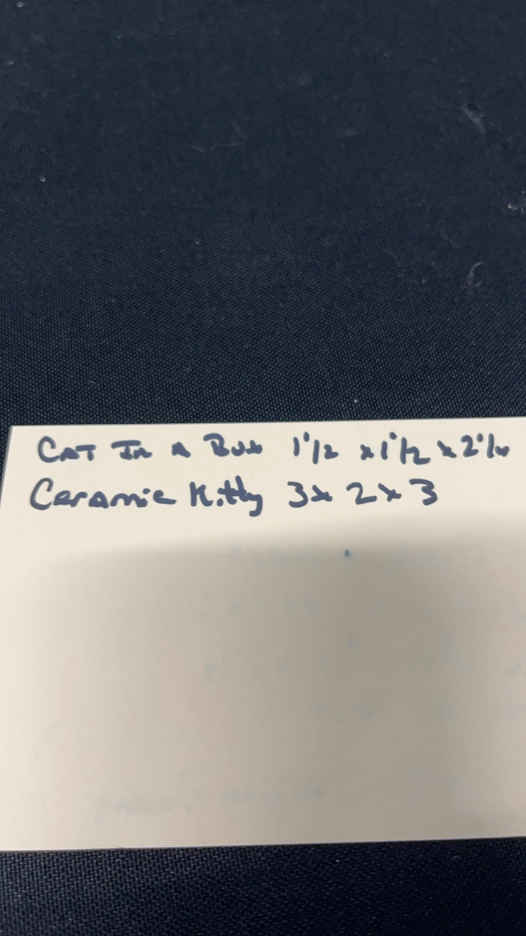 CAT In A Box 1 1/2 x 1 1/2 x 2 1/4
Ceramic Kitty 3 x 2 x 3